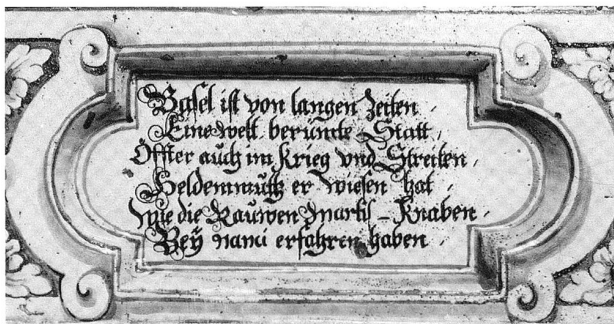 Basel ist von langen Zeiten,
Eine welt berümte Statt,
Öffter auch im Krieg vnd Streiten,
Heldenmuth er wiesen hat
Wie die Rauwen Martis-Knaben,
Beÿ nanci erfahren haben,